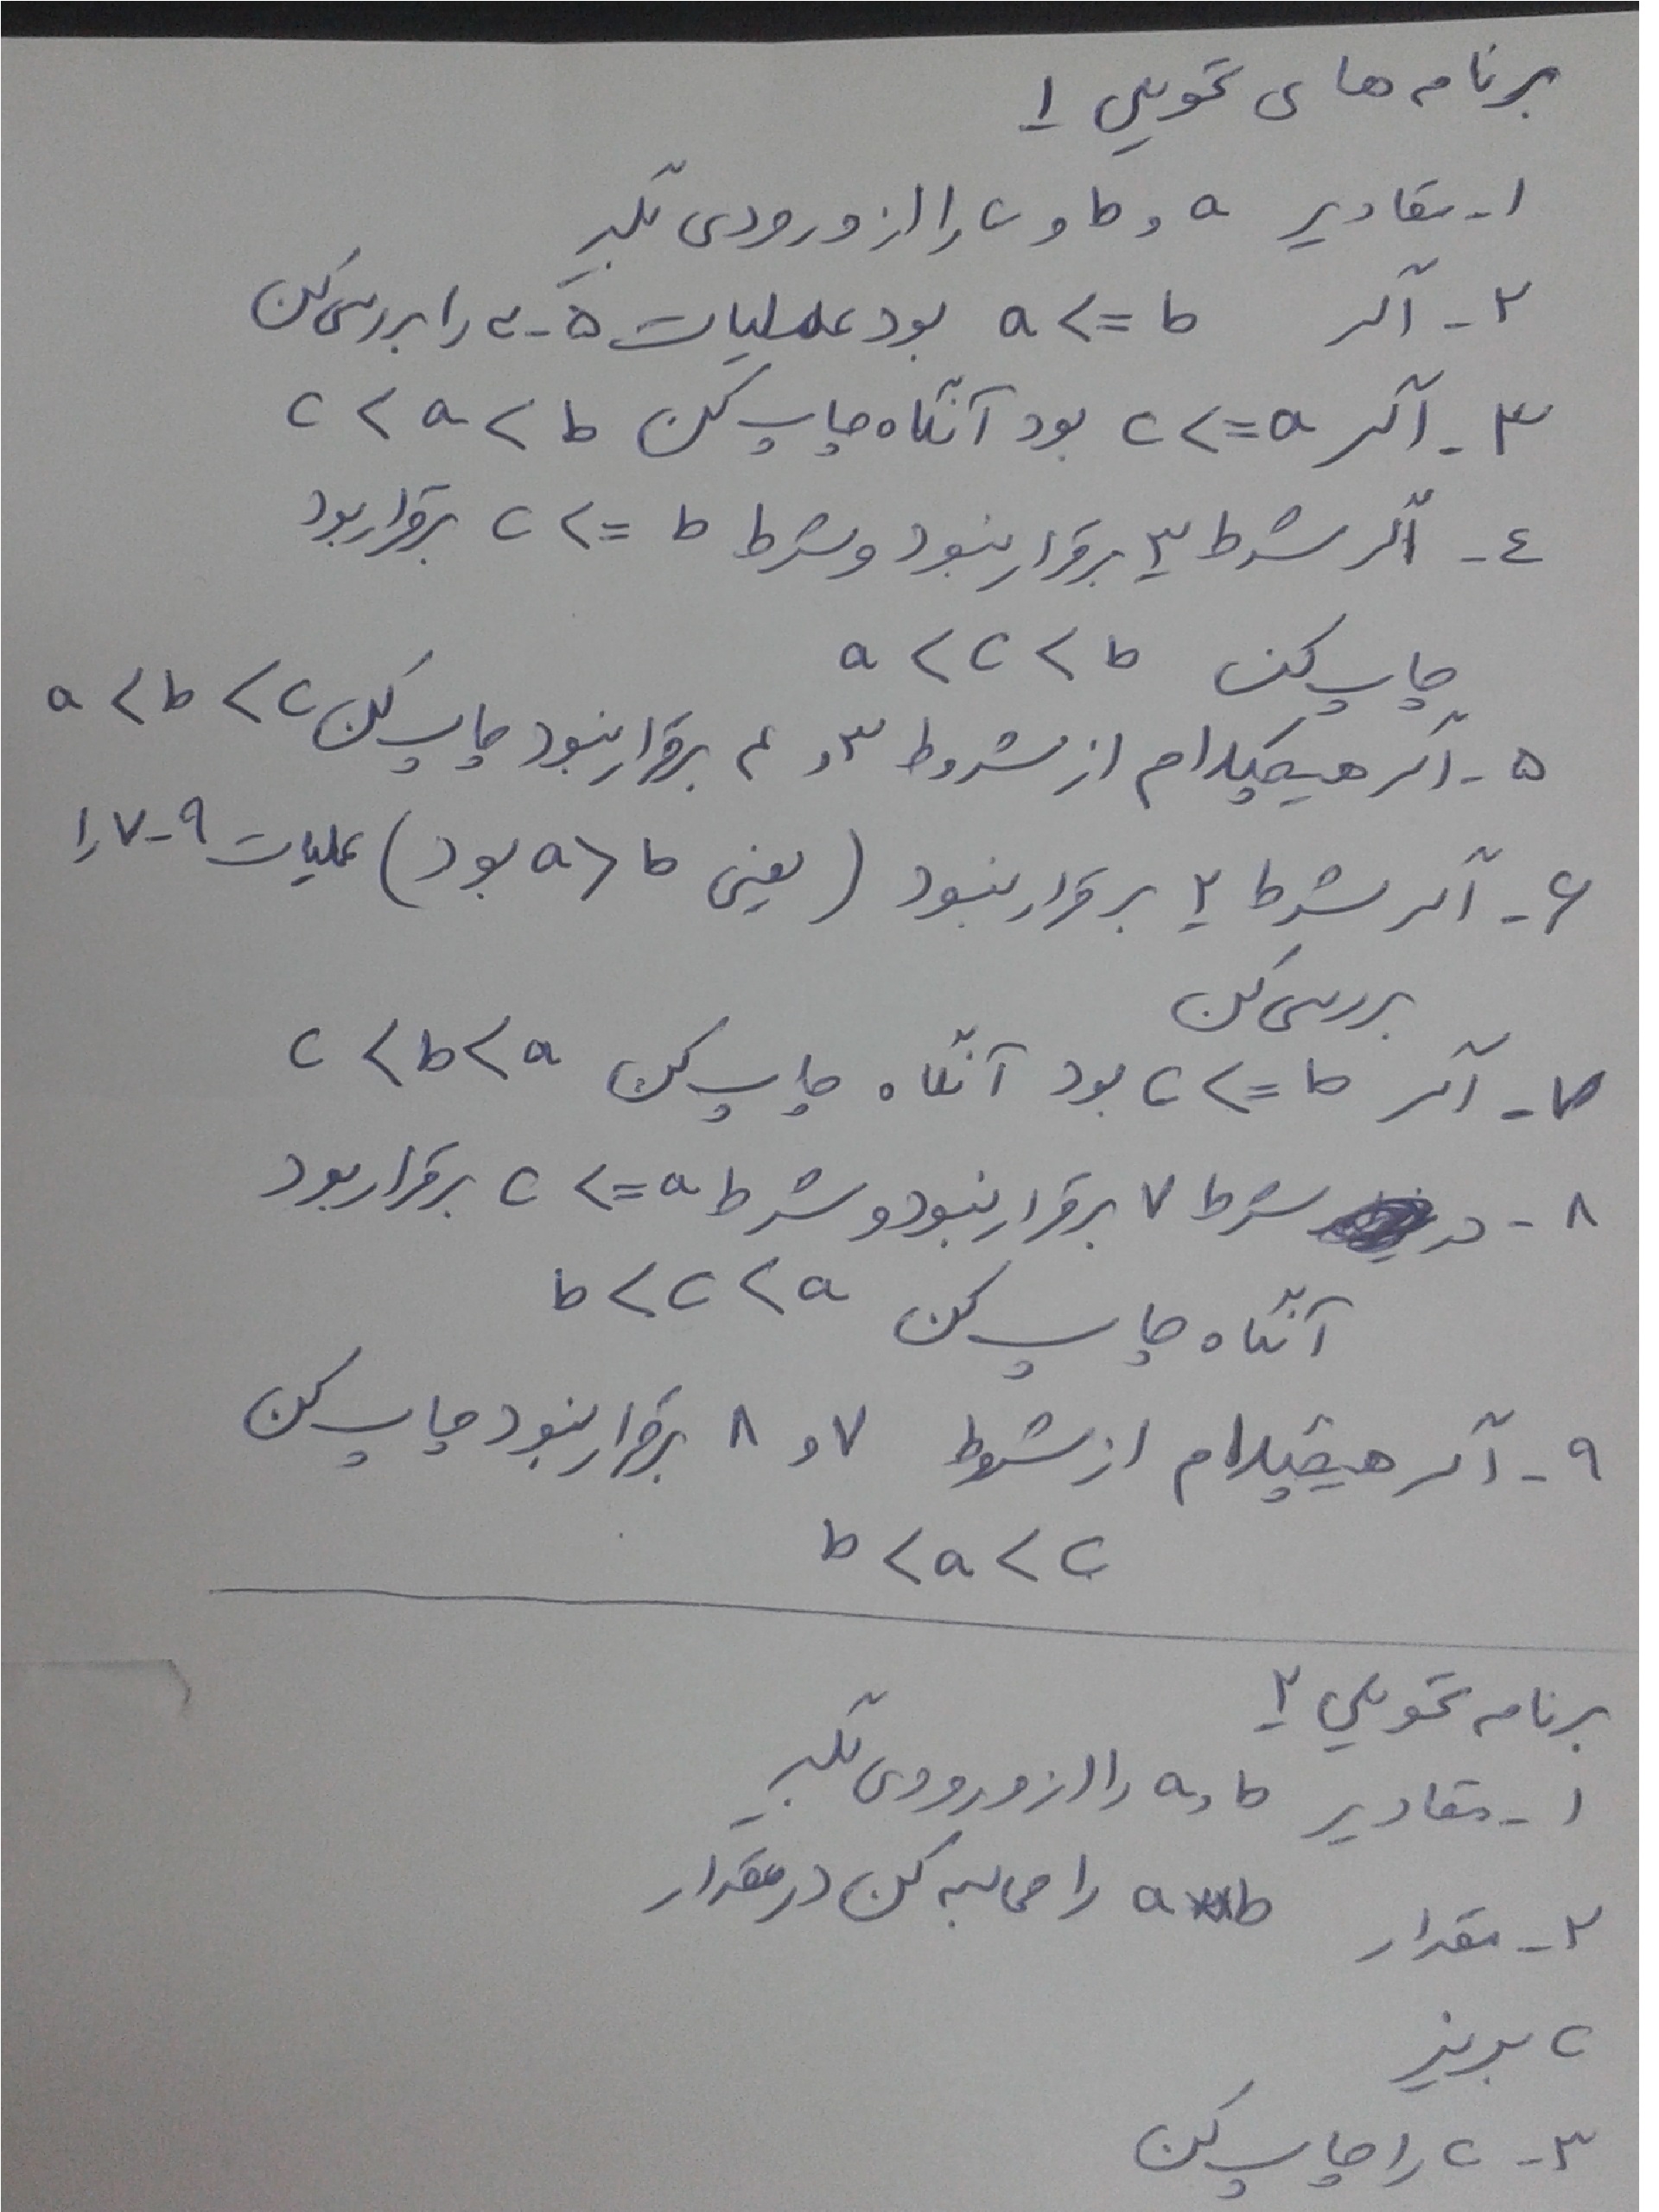 برنامه های تحویلی ۱
۱- مقادیر a و b و c را از ورودی بگیر
۲- اگر a <= b بود عملیات ۵-۳ را بررسی کن
۳- اگر c <= a بود آنگاه چاپ کن c < a < b
٤- اگر شرط ۳ برقرار نبود و شرط c <= b برقرار بود
چاپ کن a < c < b
۵- اگر هیچکدام از شروط ۳ و ۴ برقرار نبود چاپ کن a < b < c
۶- اگر شرط ۲ برقرار نبود (یعنی a > b بود) عملیات ۹-۷ را
بررسی کن
۷- اگر c <= b بود آنگاه چاپ کن c < b < a
۸- در شرط ۷ برقرار نبود و شرط c <= a برقرار بود
آنگاه چاپ کن b < c < a
۹- اگر هیچکدام از شروط ۷ و ۸ برقرار نبود چاپ کن
b < a < c
برنامه تحویلی ۲
۱- مقادیر a و b را از ورودی بگیر
۲- مقدار a**b را محاسبه کن در مقدار
c بریز
۳- c را چاپ کن